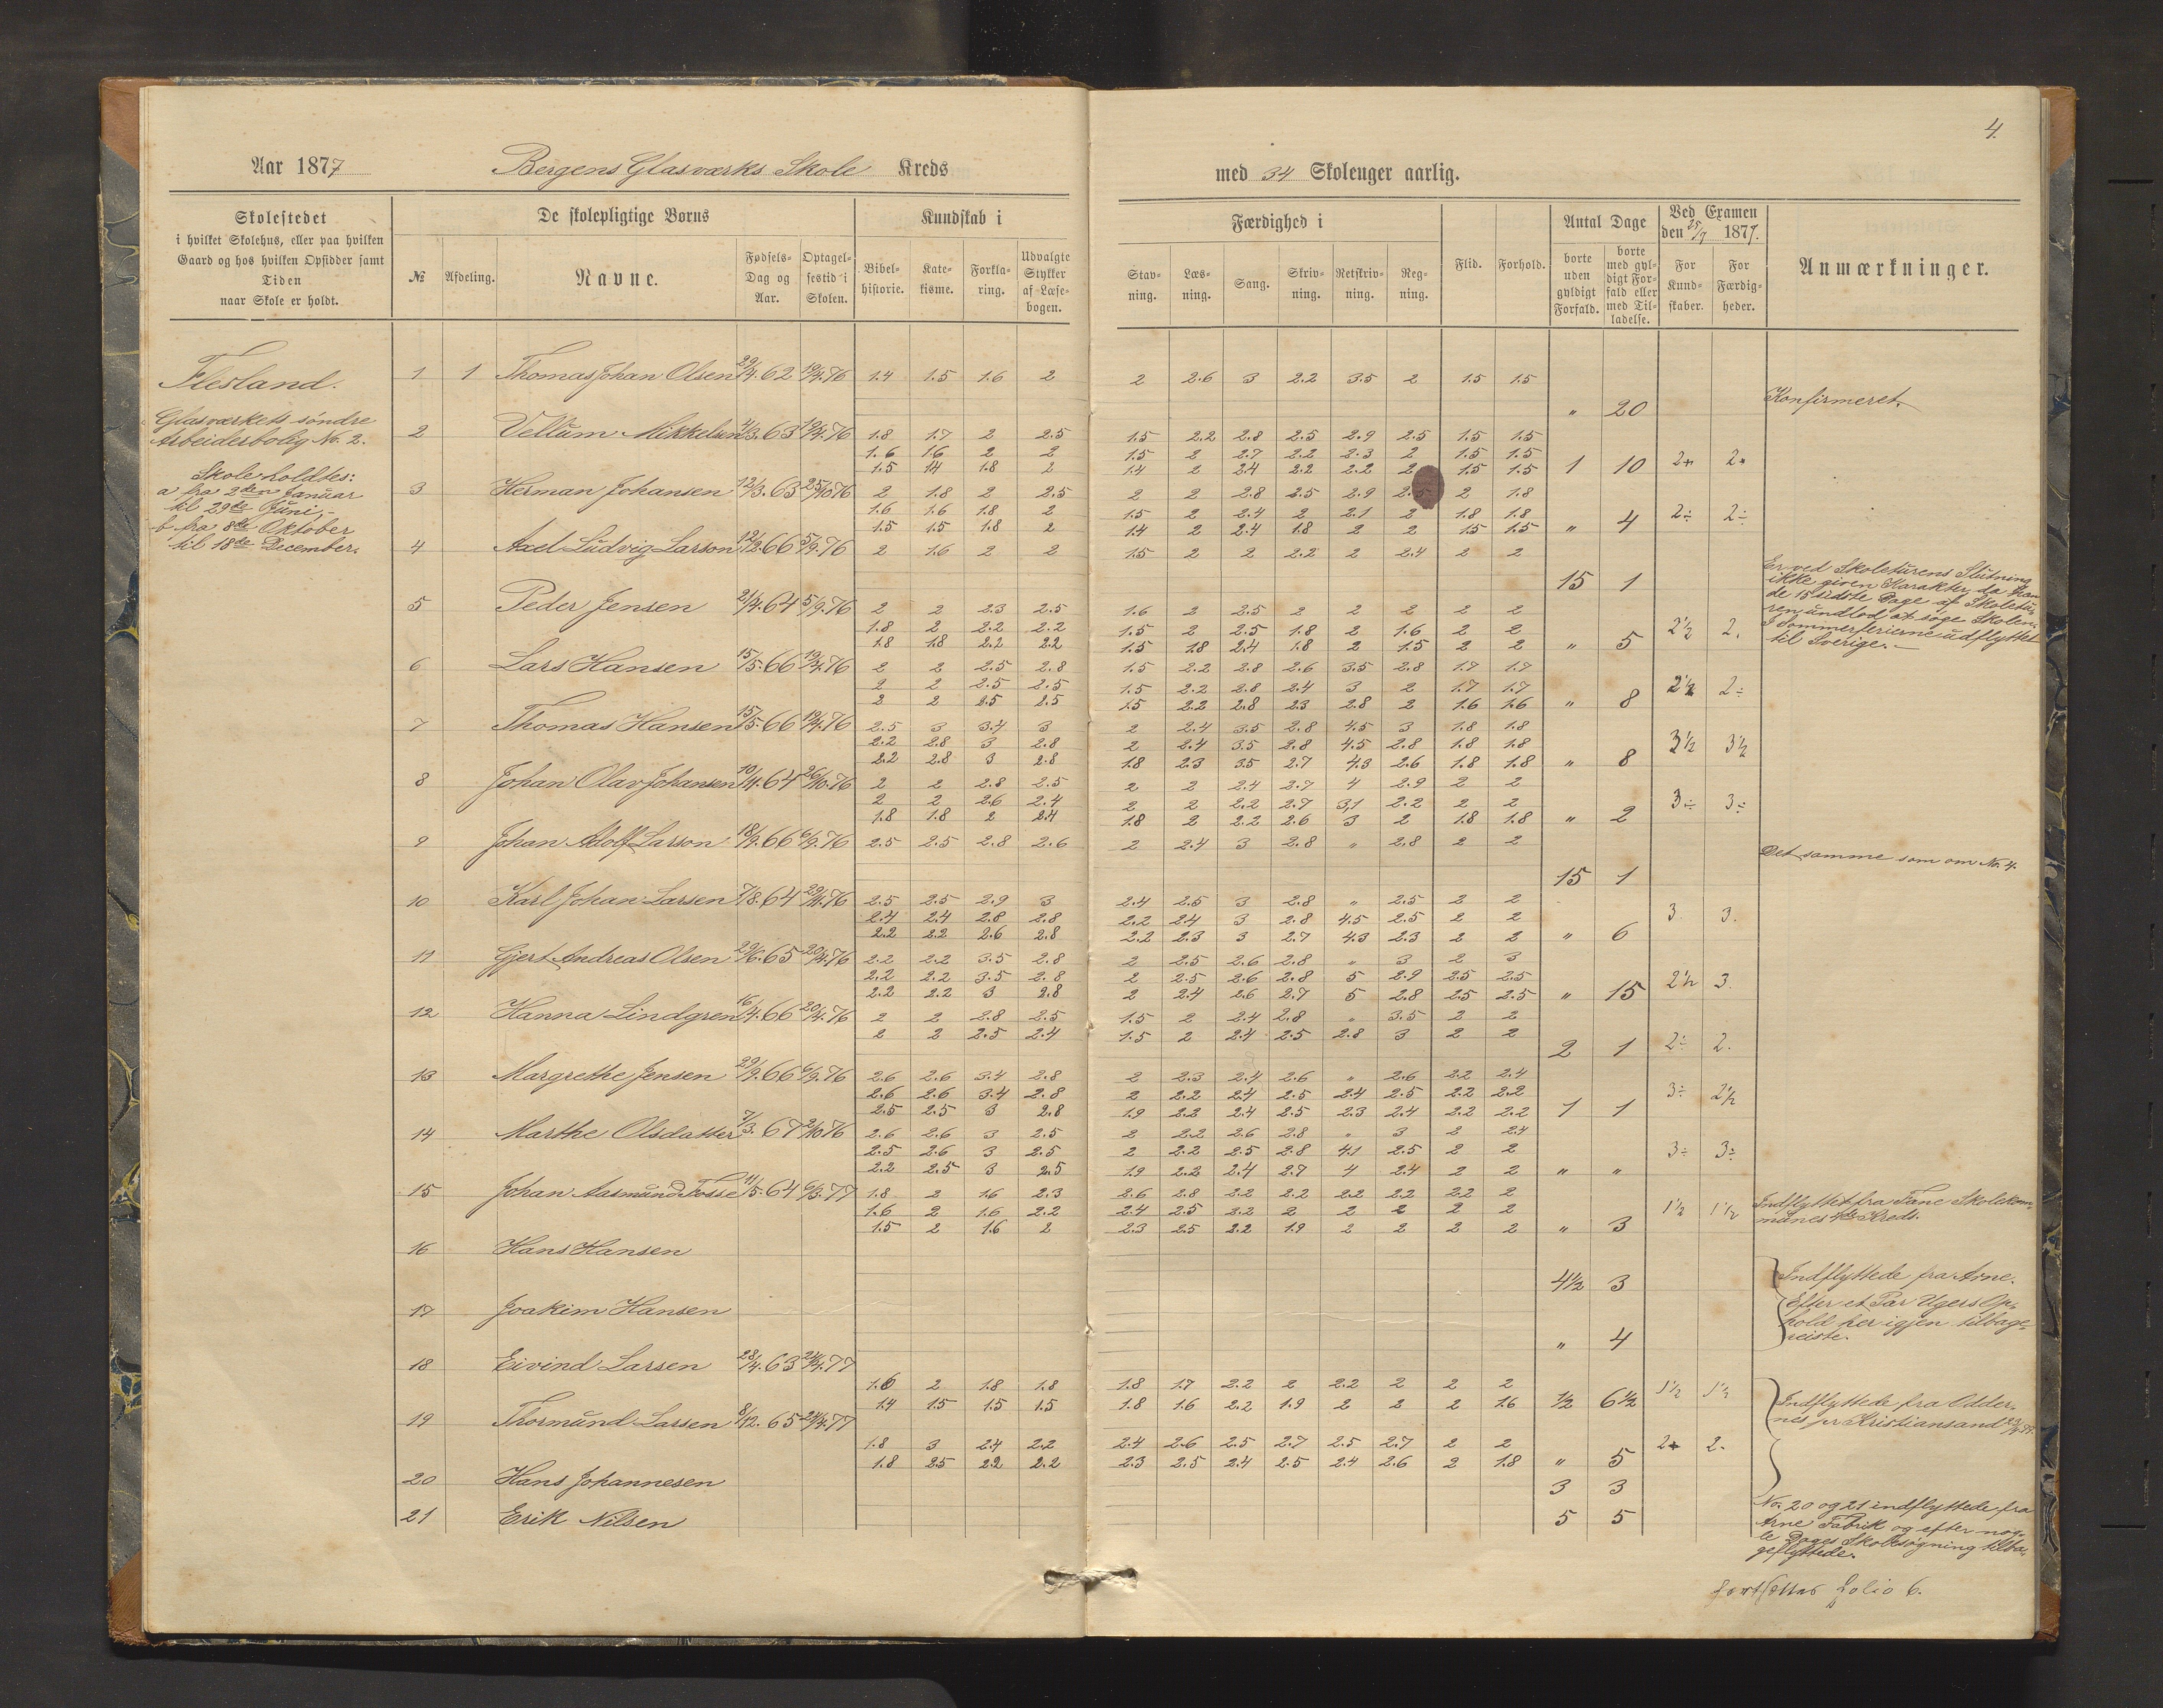 4.
Aar 1877 Bergens Glasværks Skole Kreds med 34 Skoleuger aarlig.
Skolestedet
i hvilket Skolehus, eller paa hvilken
Gaard og hos hvilken Opsidder samt
Tiden
naar Skole er holdt.
De skolepligtige Børns
№ Afdeling. Navne. Fødsels-Dag og Aar. Optagelsestid i Skolen.
Kundskab i
Bibelhistorie. Katekisme. Forklaring. Udvalgte Stykker af Læsebogen.
Færdighed i
Stavning. Læsning. Sang. Skrivning. Retskrivning. Regning.
Flid. Forhold.
Antal Dage
borte uden gyldigt Forfald. borte med gyldigt Forfald eller med Tilladelse.
Ved Examen
den 25/9 1877.
For Kundskaber. For Færdigheder.
Anmærkninger.
Flesland.
Glasværkets søndre
Arbeiderbolig No. 2.
Skole holdtes:
a fra 2den Januar
til 29de Juni,-
b fra 8de Oktober
til 18de December.
1 1 Thomas Johan Olsen 29/4.62 19/4.76 1.4 1.5 1.6 2 2 2.6 3 2.2 3.5 2 1.5 1.5
" 20 Konfirmeret.
2 Vellum Mikkelsen 4/3.63 19/4.76 1.8 1.7 2 2.5 1.5 2.2 2.8 2.5 2.9 2.5 1.5 1.5
1.6 1.6 2 2 1.5 2 2.7 2.2 2.3 2 1.5 1.5
1.5 1.4 1.8 2 1.4 2 2.4 2.2 2.2 2 1.5 1.5 1 10 2+ 2+
3 Herman Johansen 12/3.63 25/10.76 2 1.8 2 2.5 2 2 2.8 2.5 2.9 2.5 2 1.8
1.6 1.6 1.8 2 1.5 2 2.4 2 2.1 2 1.8 1.8
1.5 1.5 1.8 2 1.4 2 2.4 1.8 2 2 1.5 1.5 " 4 2÷ 2÷
4 Axel Ludvig Larson 12/2.66 5/9.76 2 1.6 2 2 1.5 2 2 2.2 2 2.4 2 2
15 1
Er ved Skoleturens Slutning
ikke given Karakter, da han
de 15 sidste Dage af Skoletu-
ren undlod at søge Skolen.
I Sommerferierne udflyttet
til Sverige.-
5 Peder Jensen 21/4.64 5/9.76 2 2 2.3 2.5 1.6 2 2.5 2 2 2 2 2
1.8 2 2.2 2.2 1.5 2 2.5 1.8 2 1.6 2 2
1.8 1.8 2.2 2.2 1.5 1.8 2.4 1.8 2 1.5 2 2 " 5 2½ 2.
6 Lars Hansen 15/5.66 19/4.76 2 2 2.5 2.8 1.5 2.2 2.8 2.6 3.5 2.8 1.7 1.7
2 2 2.5 2.5 1.5 2.2 2.8 2.4 3 2 1.7 1.7
2 2 2.5 2.5 1.5 2.2 2.8 2.3 2.8 2 1.6 1.6 " 8 2½ 2÷
7 Thomas Hansen 15/5.66 19/4.76 2.5 3 3.4 3 2 2.4 3.5 2.8 4.5 3 1.8 1.8
2.2 2.8 3 2.8 2 2.4 3.5 2.8 4.5 2.8 1.8 1.8
2.2 2.8 3 2.8 1.8 2.3 3.5 2.7 4.3 2.6 1.8 1.8 " 8 3½ 3½
8 Johan Olav Johansen 10/4.64 26/10.76 2 2 2.8 2.5 2 2 2.4 2.7 4 2.9 2 2
2 2 2.6 2.4 2 2 2.2 2.7 3,1 2.2 2 2
1.8 1.8 2 2.4 1.8 2 2.2 2.6 3 2 1.8 1.8 " 2 3÷ 3÷
9 Johan Adolf Larson 18/9.66 6/9.76 2.5 2.5 2.8 2.6 2 2.4 3 2.8 " 2.8 2 2
15 1 Det samme som om No. 4.
10 Karl Johan Larsen 7/8.64 29/4.76 2.5 2.5 2.9 3 2.4 2.5 3 2.8 " 2.5 2 2
2.4 2.4 2.8 2.8 2.2 2.4 3 2.8 4.5 2.5 2 2
2.2 2.2 2.6 2.8 2.2 2.3 3 2.7 4.3 2.3 2 2 " 6 3 3.
11 Gjert Andreas Olsen 29/6.65 20/4.76 2.2 2.2 3.5 2.8 2 2.5 2.6 2.8 " 3 2 3
2.2 2.2 3.5 2.8 2 2.5 2.6 2.8 5 2.9 2.5 2.5
2.2 2.2 3 2.8 2 2.4 2.6 2.7 5 2.8 2.5 2.5 " 15 2½ 3.
12 Hanna Lindgren 16/4.66 20/4.76 2 2 2.8 2.5 1.5 2 2.4 2.8 " 3.5 2 2
2 2 2.5 2.4 1.5 2 2.4 2.5 2.8 3 2 2
2 1 2÷ 2.
13 Margrethe Jensen 29/9.66 6/9.76 2.6 2.6 3.4 2.8 2 2.3 2.4 2.6 " 2.6 2.2 2.4
2.6 2.6 3.4 2.8 2 2.2 2.4 2.5 2.4 2.5 2.2 2.2
2.5 2.5 3 2.8 1.9 2.2 2.4 2.5 2.3 2.4 2.2 2.2 1 1 3÷ 2½
14 Marthe Olsdatter 7/3.67 2/10.76 2.6 2.6 3 2.5 2 2.2 2.6 2.8 " 3 2 2.4
2.5 2.6 3 2.5 2 2.2 2.5 2.8 4.1 2.5 2 2
2.2 2.5 3 2.5 1.9 2.2 2.4 2.7 4 2.4 2 2 " " 3÷ 3÷
15 Johan Aasmund Fosse 11/5.64 6/3.77 1.8 2 1.6 2.3 2.6 2.8 2.2 2.2 2.2 2.2 2.2 2
1.6 2 1.6 2.2 2.4 2.5 2.2 2 2 2 2 2
1.5 2 1.6 2 2.3 2.5 2.2 1.9 2 2 2 2 " 3 1½ 1½
Indflyttet fra Fane Skolekom-
munes 4de Kreds.
16 Hans Hansen
4½ 3
Indflyttede fra Arne.
Efter et Par Ugers Op-
hold her igjen tilbage-
reiste.
17 Joakim Hansen
" 4
18 Eivind Larsen 28/4.63 24/4.77
1.6 2 1.8 1.8 1.8 1.7 2.2 2 2.2 2 2 2
1.4 1.5 1.5 1.5 1.8 1.6 2.2 1.9 2 2 2 1.6 ½ 6½ 1½ 1½
Indflyttede fra Odder-
nes pr Kristiansand
19 Thormund Larsen 8/12.65 24/4.77
1.8 3 2.4 2.2 2.4 2.6 2.5 2.7 2.5 2.7 2 2
1.8 2.5 2.2 2.2 2.3 2.5 2.4 2.5 2.4 2.6 2 1.8 " 5 2+ 2.
20 Hans Johannesen 3 3
21 Erik Nilsen 5 5
No. 20 og 21 indflyttede fra
Arne Fabrik og efter nog-
le Dages Skolesøgning tilba-
geflyttede.
Fortsættes Folio 6.